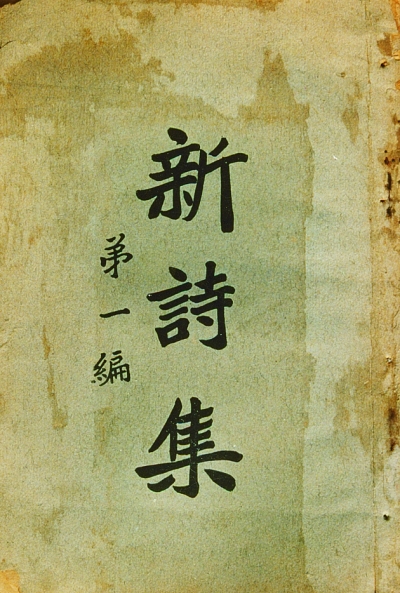 新詩集
第一編